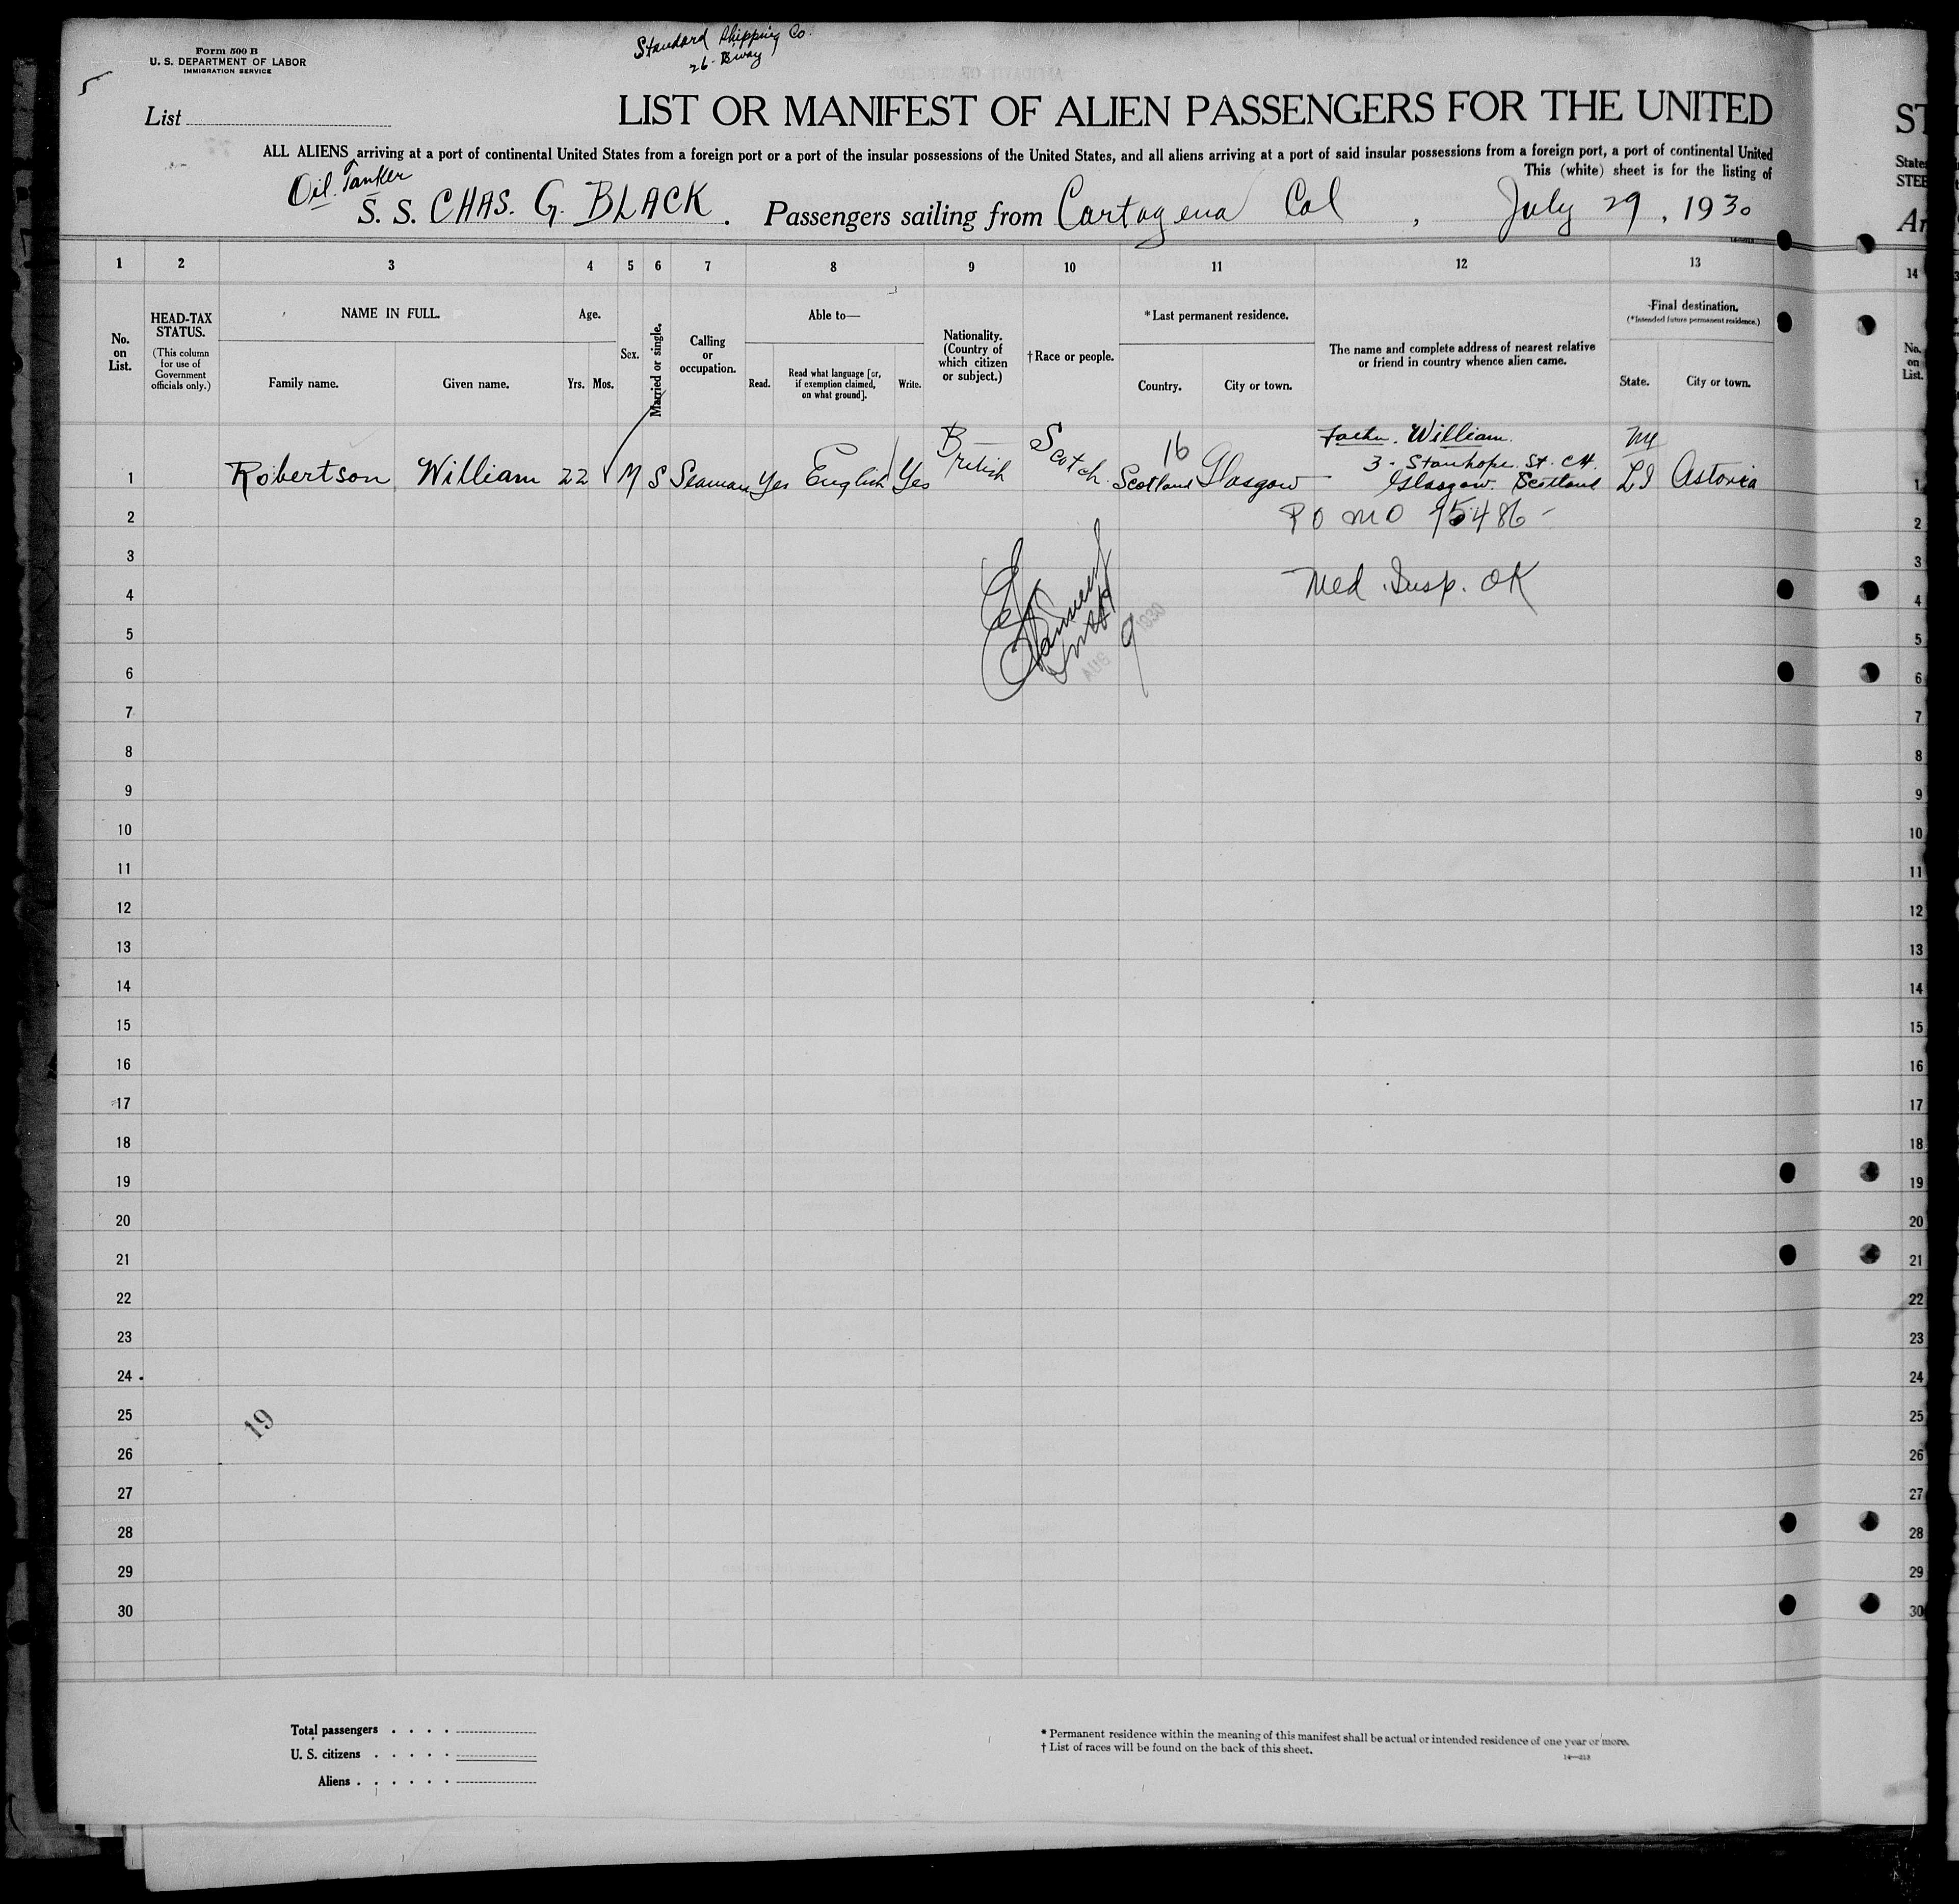 Form 500 B
U. S. DEPARTMENT OF LABOR
IMMIGRATION SERVICE
Standard Shipping Co.
26 - Bway
5
List
LIST OR MANIFEST OF ALIEN PASSENGERS FOR THE UNITED
ST
ALL ALIENS arriving at a port of continental United States from a foreign port or a port of the insular possessions of the United States, and all aliens arriving at a port of said insular possessions from a foreign port, a port of continental United
This (white) sheet is for the listing of
States
STEE
Oil Tanker
S. S. CHAS. G. BLACK. Passengers sailing from Cartagena Col, July 29, 1930
Ar
1 2 3 4 5 6 7 8 9 10 11 12 13 14
No. on List.
HEAD-TAX STATUS.
(This column for use of Government officials only.)
NAME IN FULL.
Family name. Given name.
Age.
Yrs. Mos.
Sex.
Married or single.
Calling or occupation.
Able to—
Read. Read what language [or, if exemption claimed, on what ground]. Write.
Nationality. (Country of which citizen or subject.)
†Race or people.
*Last permanent residence.
Country. City or town.
The name and complete address of nearest relative or friend in country whence alien came.
Final destination.
(*Intended future permanent residence.)
State. City or town.
No. on List.
Father. William. NY
1 Robertson William 22 M S Seaman Yes English Yes British Scotch 16 Scotland Glasgow 3 - Stanhope St. LI Astoria 1
Glasgow. Scotland
2 P O M O 75486 - 2
3 3
4 Med. Insp. OK 4
5 AUG 9 1930 5
6 6
7 7
8 8
9 9
10 10
11 11
12 12
13 13
14 14
15 15
16 16
17 17
18 18
19 19
20 20
21 21
22 22
23 23
24 24
25 19 25
26 26
27 27
28 28
29 29
30 30
Total passengers
U. S. citizens
Aliens
* Permanent residence within the meaning of this manifest shall be actual or intended residence of one year or more.
† List of races will be found on the back of this sheet.